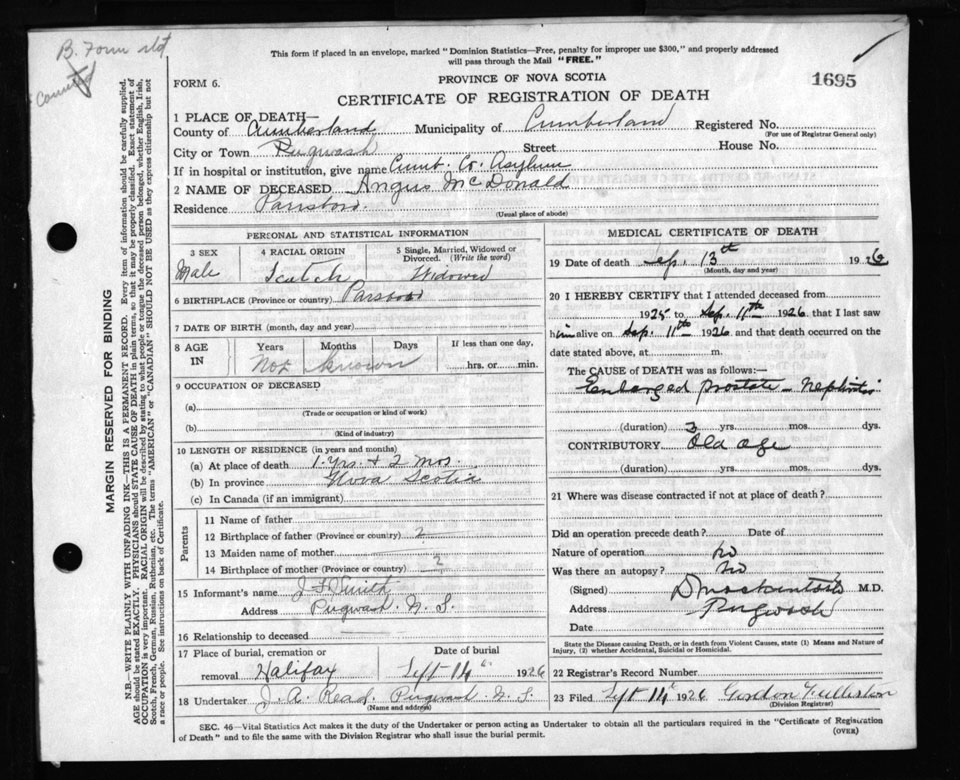 B. Form
This form if placed in an envelope, marked "Dominion Statistics—Free, penalty for improper use $300," and properly addressed
will pass through the Mail "FREE."
FORM 6.
PROVINCE OF NOVA SCOTIA
1695
CERTIFICATE OF REGISTRATION OF DEATH
1 PLACE OF DEATH—
County of Cumberland Municipality of Cumberland Registered No.
(For use of Registrar General only)
City or Town Pugwash Street House No.
If in hospital or institution, give name Cumb. Co. Asylum
2 NAME OF DECEASED Angus McDonald
Residence
(Usual place of abode)
PERSONAL AND STATISTICAL INFORMATION
3 SEX 4 RACIAL ORIGIN 5 Single, Married, Widowed or Divorced. (Write the word)
Male Scotch Widowed
6 BIRTHPLACE (Province or country)
7 DATE OF BIRTH (month, day and year)
8 AGE IN Years Months Days If less than one day,
Not known hrs. or min.
9 OCCUPATION OF DECEASED
(a)
(Trade or occupation or kind of work)
(b)
(Kind of industry)
10 LENGTH OF RESIDENCE (in years and months)
(a) At place of death 1 yrs. + 2 mos.
(b) In province Nova Scotia
(c) In Canada (if an immigrant)
Parents
11 Name of father
12 Birthplace of father (Province or country) ?
13 Maiden name of mother
14 Birthplace of mother (Province or country) ?
15 Informant's name J F Smith
Address Pugwash N. S.
16 Relationship to deceased
17 Place of burial, cremation or removal Date of burial
Halifax Sept 14 1926
18 Undertaker J. A. Read. Pugwash N. S.
(Name and address)
MEDICAL CERTIFICATE OF DEATH
19 Date of death Sep. 13th 1926
(Month, day and year)
20 I HEREBY CERTIFY that I attended deceased from
1925 to Sep. 11th 1926 that I last saw
him alive on Sep. 11th 1926 and that death occurred on the
date stated above, at m.
The CAUSE OF DEATH was as follows:—
Enlarged prostate — Nephritis
(duration) 3 yrs. mos. dys.
CONTRIBUTORY Old age
(duration) yrs. mos. dys.
21 Where was disease contracted if not at place of death?
Did an operation precede death? Date of
Nature of operation no
Was there an autopsy? no
(Signed) D Mackintosh M.D.
Address Pugwash
Date
State the Disease causing Death, or in death from Violent Causes, state (1) Means and Nature of
Injury, (2) whether Accidental, Suicidal or Homicidal.
22 Registrar's Record Number
23 Filed Sept 14 1926 Gordon
(Division Registrar)
SEC. 46—Vital Statistics Act makes it the duty of the Undertaker or person acting as Undertaker to obtain all the particulars required in the "Certificate of Registration
of Death" and to file the same with the Division Registrar who shall issue the burial permit.
(OVER)
MARGIN RESERVED FOR BINDING
N.B.—WRITE PLAINLY WITH UNFADING INK—THIS IS A PERMANENT RECORD. Every item of information should be carefully supplied.
AGE should be stated EXACTLY. PHYSICIANS should STATE CAUSE OF DEATH in plain terms, so that it may be properly classified. Exact statement of
OCCUPATION is very important. RACIAL ORIGIN will be described by stating to what people or tongue the deceased person belonged, whether English, Irish,
Scotch, French, German, Russian, Ruthenian, etc. The terms "AMERICAN" or "CANADIAN" SHOULD NOT BE USED as they express citizenship but not
a race or people. See instructions on back of Certificate.